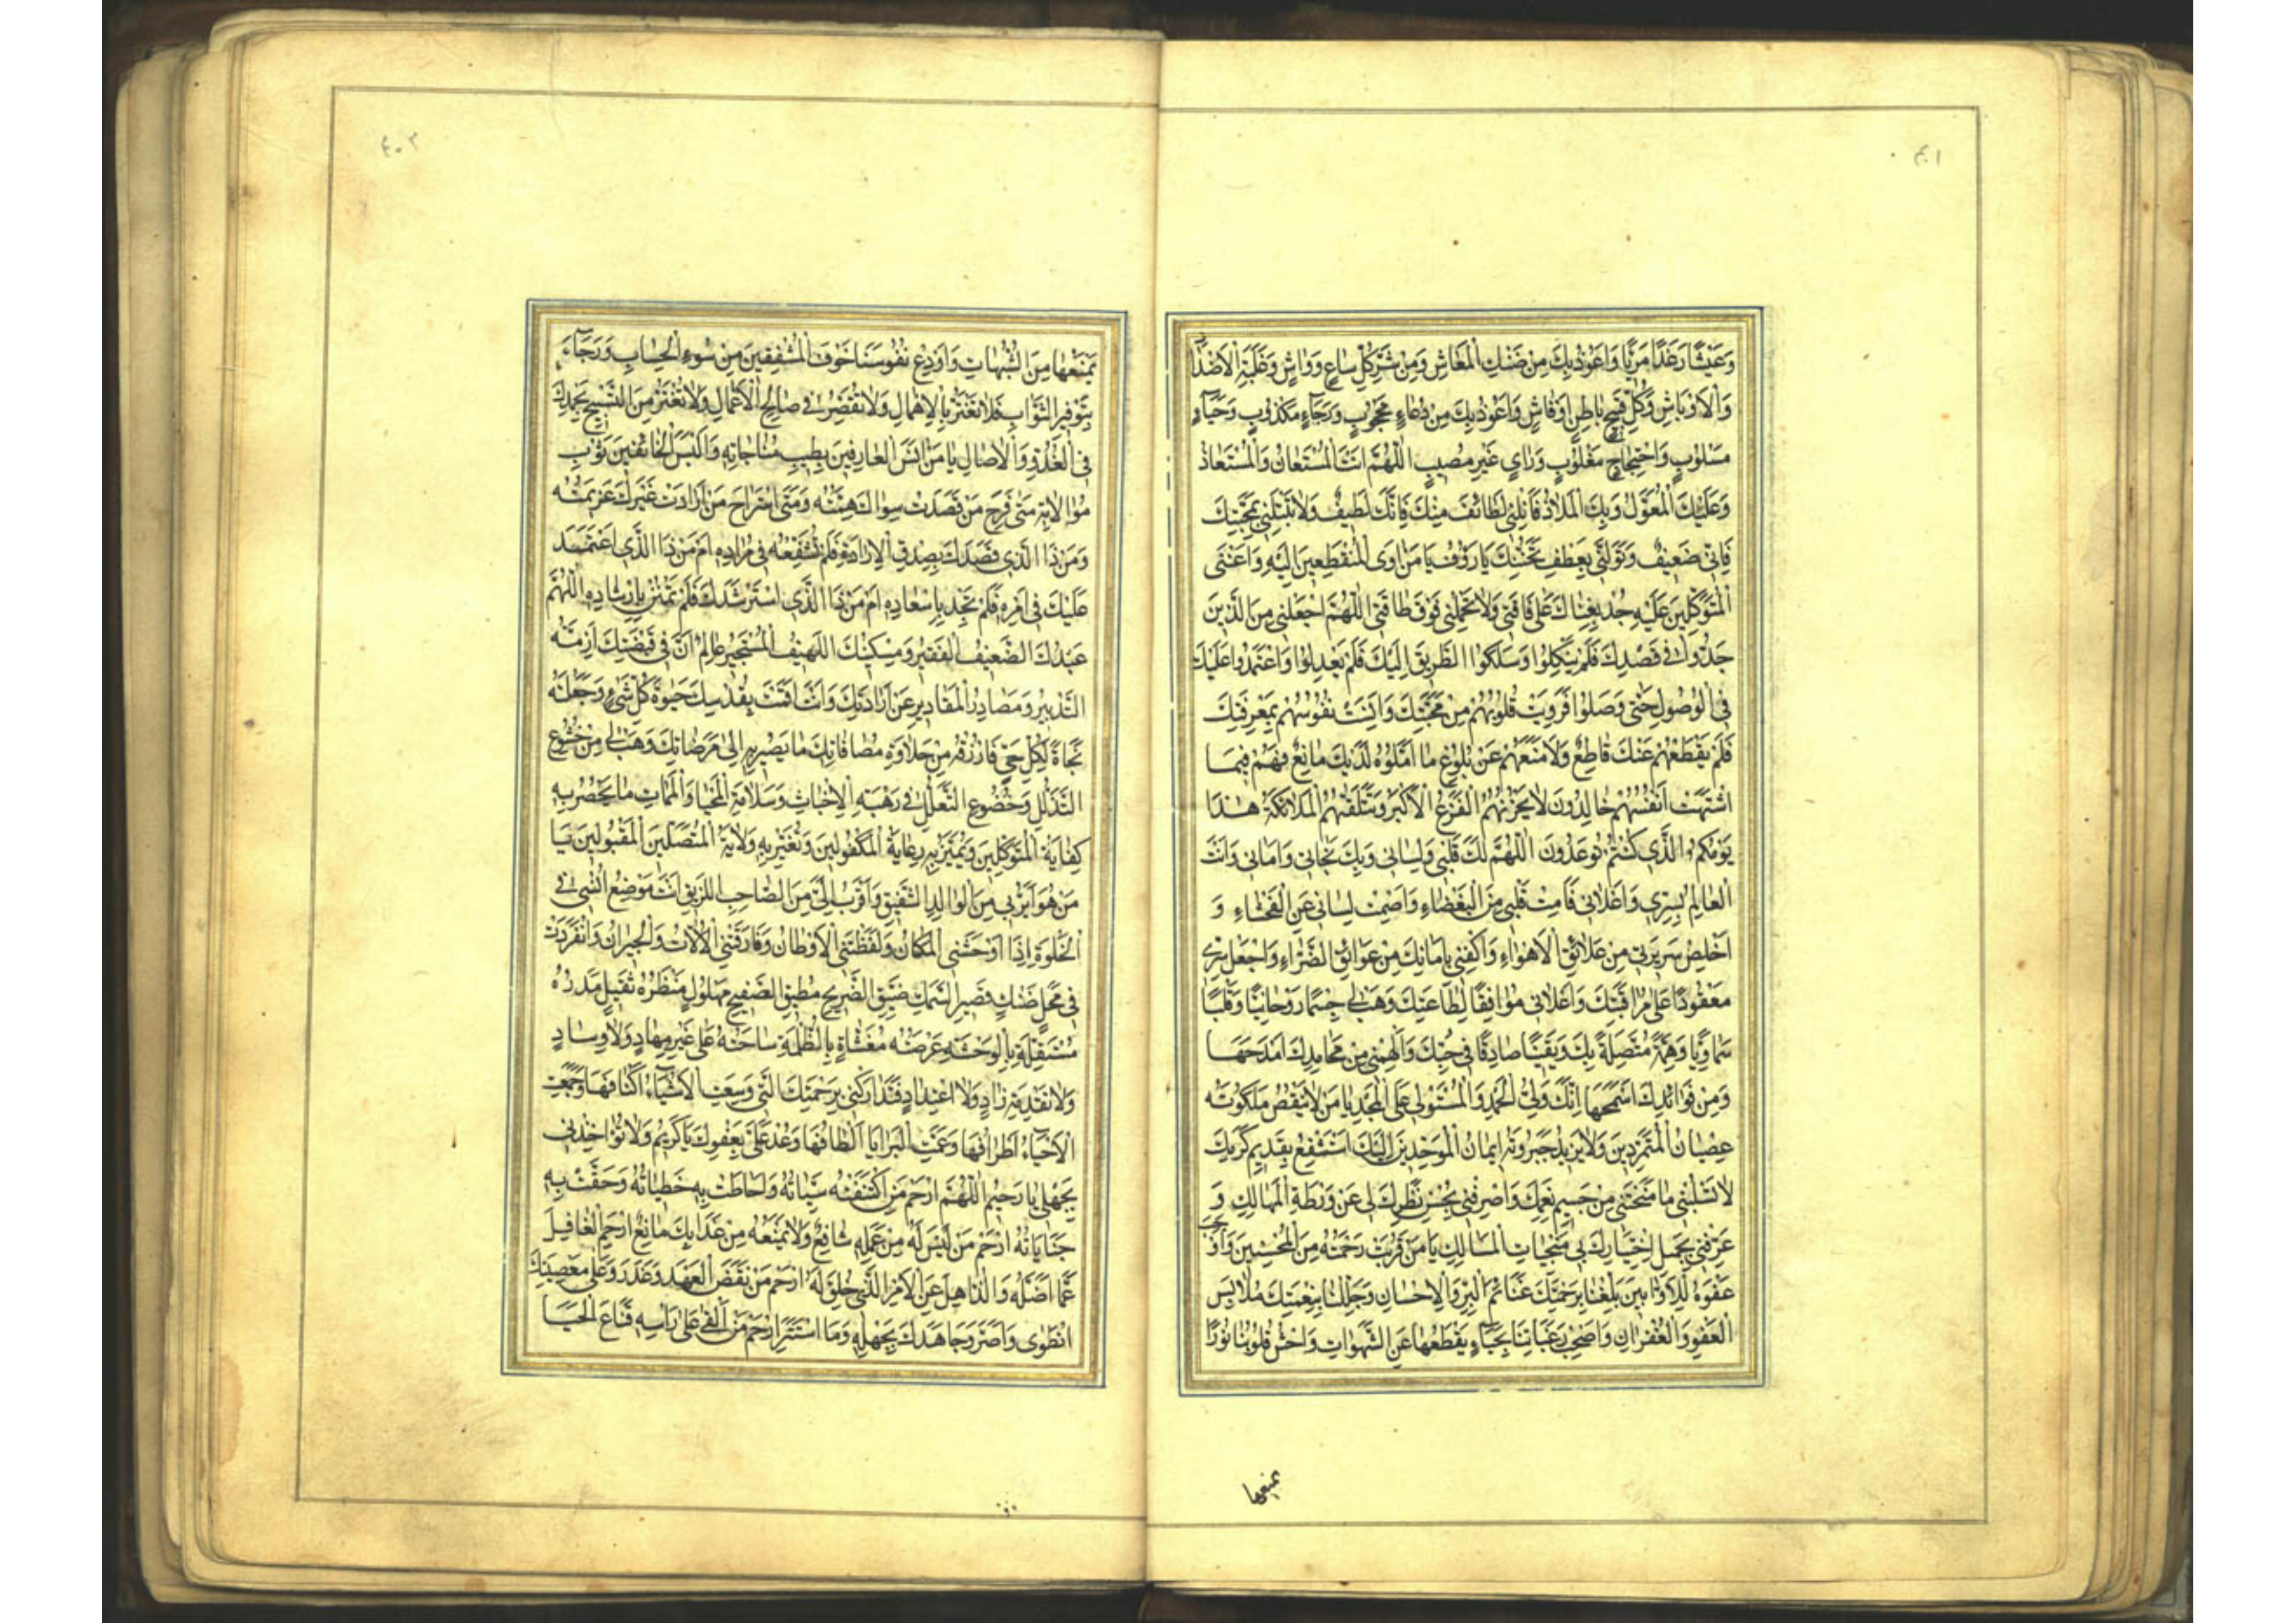 ٤٠١
وَعَيْشًا رَغَدًا مَرِيًّا وَاَعُوذُ بِكَ مِنْ ضَنْكِ الْمَعَاشِ وَمِنْ شَرِّ كُلِّ سَاعٍ وَوَاشٍ وَغَلَبَةِ الْاَضْدَادِ
وَالْاَوْبَاشِ وَكُلِّ قَبِيحٍ بَاطِنٍ اَوْ فَاشٍ وَاَعُوذُ بِكَ مِنْ دُعَاءٍ مَحْجُوبٍ وَرَجَاءٍ مَكْذُوبٍ وَحَيَاءٍ
مَسْلُوبٍ وَاحْتِجَاجٍ مَغْلُوبٍ وَرَايٍ غَيْرِ مُصِيبٍ اَللّٰهُمَّ اَنْتَ الْمُسْتَعَانُ وَالْمُسْتَعَاذُ
وَعَلَيْكَ الْمُعَوَّلُ وَبِكَ الْمَلَاذُ فَاَنِلْنِي لَطَائِفَ مِنَنِكَ فَاِنَّكَ لَطِيفٌ وَلَا تَبْتَلِنِي بِمِحْنَتِكَ
فَاِنِّي ضَعِيفٌ وَتَوَلَّنِي بِعَطْفِ تَحَنُّنِكَ يَا رَؤُفُ يَا مَنْ اٰوَى الْمُنْقَطِعِينَ اِلَيْهِ وَاَغْنَى
الْمُتَوَكِّلِينَ عَلَيْهِ جُدْ بِغِنَاكَ عَلٰى فَاقَتِي وَلَا تُحَمِّلْنِي فَوْقَ طَاقَتِي اَللّٰهُمَّ اجْعَلْنِي مِنَ الَّذِينَ
جَدُّوا فِي قَصْدِكَ فَلَمْ يَنْكِلُوا وَسَلَكُوا الطَّرِيقَ اِلَيْكَ فَلَمْ يَعْدِلُوا وَاعْتَمَدُوا عَلَيْكَ
فِي الْوُصُولِ حَتّٰى وَصَلُوا فَرَوِيَتْ قُلُوبُهُمْ مِنْ مَحَبَّتِكَ وَاٰنَسَتْ نُفُوسُهُمْ بِمَعْرِفَتِكَ
فَلَمْ يَقْطَعْهُمْ عَنْكَ قَاطِعٌ وَلَا مَنَعَهُمْ عَنْ بُلُوغِ مَا اَمَّلُوهُ لَدَيْكَ مَانِعٌ فَهُمْ فِيمَا
اشْتَهَتْ اَنْفُسُهُمْ خَالِدُونَ لَا يَحْزُنُهُمُ الْفَزَعُ الْاَكْبَرُ وَتَتَلَقّٰهُمُ الْمَلَائِكَةُ هٰذَا
يَوْمُكُمُ الَّذِي كُنْتُمْ تُوعَدُونَ اَللّٰهُمَّ لَكَ قَلْبِي وَلِسَانِي وَبِكَ نَجَاتِي وَاَمَانِي وَاَنْتَ
الْعَالِمُ بِسِرِّي وَاِعْلَانِي فَاَمِتْ قَلْبِي مِنَ الْبَغْضَاءِ وَاَصْمِتْ لِسَانِي عَنِ الْفَحْشَاءِ وَ
اَخْلِصْ سَرِيرَتِي مِنْ عَلَائِقِ الْاَهْوَاءِ وَاكْفِنِي بِاَمَانِكَ مِنْ عَوَائِقِ الضَّرَّاءِ وَاجْعَلْ سِرِّي
مَعْقُودًا عَلٰى مُرَاقَبَتِكَ وَاِعْلَانِي مُوَافِقًا لِطَاعَتِكَ وَهَبْ لِي جِسْمًا رَوْحَانِيًّا وَقَلْبًا
سَمَاوِيًّا وَهِمَّةً مُتَّصِلَةً بِكَ وَيَقِينًا صَادِقًا فِي حُبِّكَ وَاَلْهِمْنِي مِنْ مَحَامِدِكَ اَمْدَحَهَا
وَمِنْ فَوَائِدِكَ اَسْمَحَهَا اِنَّكَ وَلِيُّ الْحَمْدِ وَالْمُسْتَوْلِي عَلَى الْمَجْدِ يَا مَنْ لَا يَنْقُصُ مَلَكُوتَهُ
عِصْيَانُ الْمُتَمَرِّدِينَ وَلَا يَزِيدُ جَبَرُوتَهُ اِيمَانُ الْمُوَحِّدِينَ اِلَيْكَ اَسْتَشْفِعُ بِقَدِيمِ كَرَمِكَ
لَا تَسْلُبْنِي مَا مَنَحْتَنِي مِنْ جَسِيمِ نِعَمِكَ وَاصْرِفْنِي بِحُسْنِ نَظَرِكَ لِي عَنْ وَرْطَةِ الْمَهَالِكِ وَ
عَرِّفْنِي بِجَمِيلِ اخْتِيَارِكَ لِي مُنْجِيَاتِ الْمَسَالِكِ يَا مَنْ قَرُبَتْ رَحْمَتُهُ مِنَ الْمُحْسِنِينَ وَاَوْجَبَ
عَفْوَهُ لِلْاَوَّابِينَ بَلِّغْنَا بِرَحْمَتِكَ غَنَائِمَ الْبِرِّ وَالْاِحْسَانِ وَجَلِّلْنَا بِنِعْمَتِكَ مَلَابِسَ
الْعَفْوِ وَالْغُفْرَانِ وَاَصْحِبْ رَغَبَاتِنَا بِحَيَاءٍ يَقْطَعُهَا عَنِ الشَّهَوَاتِ وَاحْشُ قُلُوبَنَا نُورًا
يمنعها
٤٠٢
يَمْنَعُهَا مِنَ الشُّبُهَاتِ وَاَوْدِعْ نُفُوسَنَا خَوْفَ الْمُشْفِقِينَ مِنْ سُوءِ الْحِسَابِ وَرَجَاءَ
بِتَوْفِيرِ الثَّوَابِ فَلَا نَغْتَرَّ بِالْاِهْمَالِ وَلَا نُقَصِّرَ فِي صَالِحِ الْاَعْمَالِ وَلَا نَفْتُرَ مِنَ التَّسْبِيحِ بِحَمْدِكَ
فِي الْغُدُوِّ وَالْاٰصَالِ يَا مَنْ اٰنَسَ الْعَارِفِينَ بِطِيبِ مُنَاجَاتِهِ وَاَلْبَسَ الْخَائِفِينَ ثَوْبَ
مُوَالَاتِهِ مَتٰى فَرِحَ مَنْ قَصَدَتْ سِوَاكَ هِمَّتُهُ وَمَتَى اسْتَرَاحَ مَنْ اَرَادَتْ غَيْرَكَ عَزِيمَتُهُ
وَمَنْ ذَا الَّذِي قَصَدَكَ بِصِدْقِ الْاِرَادَةِ فَلَمْ تُشَفِّعْهُ فِي مُرَادِهِ اَمْ مَنْ ذَا الَّذِي اعْتَمَدَ
عَلَيْكَ فِي اَمْرِهِ فَلَمْ تَجُدْ بِاِسْعَادِهِ اَمْ مَنْ ذَا الَّذِي اسْتَرْشَدَكَ فَلَمْ تَمْنُنْ بِاِرْشَادِهِ اَللّٰهُمَّ
عَبْدُكَ الضَّعِيفُ الْفَقِيرُ وَمِسْكِينُكَ اللَّهِيفُ الْمُسْتَجِيرُ عَالِمٌ اَنَّ فِي قَبْضَتِكَ اَزِمَّةَ
التَّدْبِيرِ وَمَصَادِرَ الْمَقَادِيرِ عَنْ اِرَادَتِكَ وَاَنَّكَ اَقَمْتَ بِقُدْسِكَ حَيٰوةَ كُلِّ شَيْءٍ وَجَعَلْتَهُ
نَجَاةً لِكُلِّ حَيٍّ فَارْزُقْهُ مِنْ حَلَاوَةِ مُصَافَاتِكَ مَا يَصِيرُ بِهِ اِلٰى مَرْضَاتِكَ وَهَبْ لِي مِنْ خُشُوعِ
التَّذَلُّلِ وَخُضُوعِ التَّعَلُّلِ فِي رَهْبَةِ الْاِخْبَاتِ وَسَلَامَةِ الْمَحْيَا وَالْمَمَاتِ مَا تَحْضُرُ بِهِ
كِفَايَةُ الْمُتَوَكِّلِينَ وَتَمِيرُ بِهِ رِعَايَةُ الْمَكْفُولِينَ وَتُغِيرُ بِهِ وَلَايَةُ الْمُتَّصِلِينَ الْمَقْبُولِينَ يَا
مَنْ هُوَ اَبَرُّ بِي مِنَ الْوَالِدِ الشَّفِيقِ وَاَقْرَبُ اِلَيَّ مِنَ الصَّاحِبِ اللَّزِيقِ اَنْتَ مَوْضِعُ اُنْسِي فِي
الْخَلْوَةِ اِذَا اَوْحَشَنِي الْمَكَانُ وَلَفَظَتْنِي الْاَوْطَانُ وَفَارَقَتْنِي الْاُلَّافُ وَالْجِيرَانُ وَانْفَرَدْتُ
فِي مَحَلٍّ ضَنْكٍ قَصِيرِ السَّمْكِ ضَيِّقِ الضَّرِيحِ مُطْبَقِ الصَّفِيحِ مَهُولٍ مَنْظَرُهُ ثَقِيلٍ مَدَرُهُ
مُسْتَقِلَّةٍ بِالْوَحْشَةِ عَرْصَتُهُ مُغَشَّاةٍ بِالظُّلْمَةِ سَاحَتُهُ عَلٰى غَيْرِ مِهَادٍ وَلَا وِسَادٍ
وَلَا تَقْدِمَةِ زَادٍ وَلَا اعْتِدَادٍ فَتَدَارَكْنِي بِرَحْمَتِكَ الَّتِي وَسِعَتِ الْاَشْيَاءَ اَكْنَافُهَا وَجَمَعَتِ
الْاَحْيَاءَ اَطْرَافُهَا وَعَمَّتِ الْبَرَايَا اَلْطَافُهَا وَعُدْ عَلَيَّ بِعَفْوِكَ يَا كَرِيمُ وَلَا تُؤَاخِذْنِي
بِجَهْلِي يَا رَحِيمُ اَللّٰهُمَّ ارْحَمْ مَنِ اكْتَنَفَتْهُ سَيِّئَاتُهُ وَاَحَاطَتْ بِهِ خَطِيئَاتُهُ وَحَفَّتْ بِهِ
جِنَايَاتُهُ ارْحَمْ مَنْ لَيْسَ لَهُ مِنْ عَمَلِهِ شَافِعٌ وَلَا يَمْنَعُهُ مِنْ عَذَابِكَ مَانِعٌ ارْحَمِ الْغَافِلَ
عَمَّا اَضَلَّهُ وَالذَّاهِلَ عَنِ الْاَمْرِ الَّذِي خُلِقَ لَهُ ارْحَمْ مَنْ نَقَضَ الْعَهْدَ وَغَدَرَ وَعَلٰى مَعْصِيَتِكَ
انْطَوٰى وَاَصَرَّ وَجَاهَدَكَ بِجَهْلِهِ وَمَا اسْتَتَرَ ارْحَمْ مَنْ اَلْقٰى عَلٰى رَاْسِهِ قِنَاعَ الْحَيَا